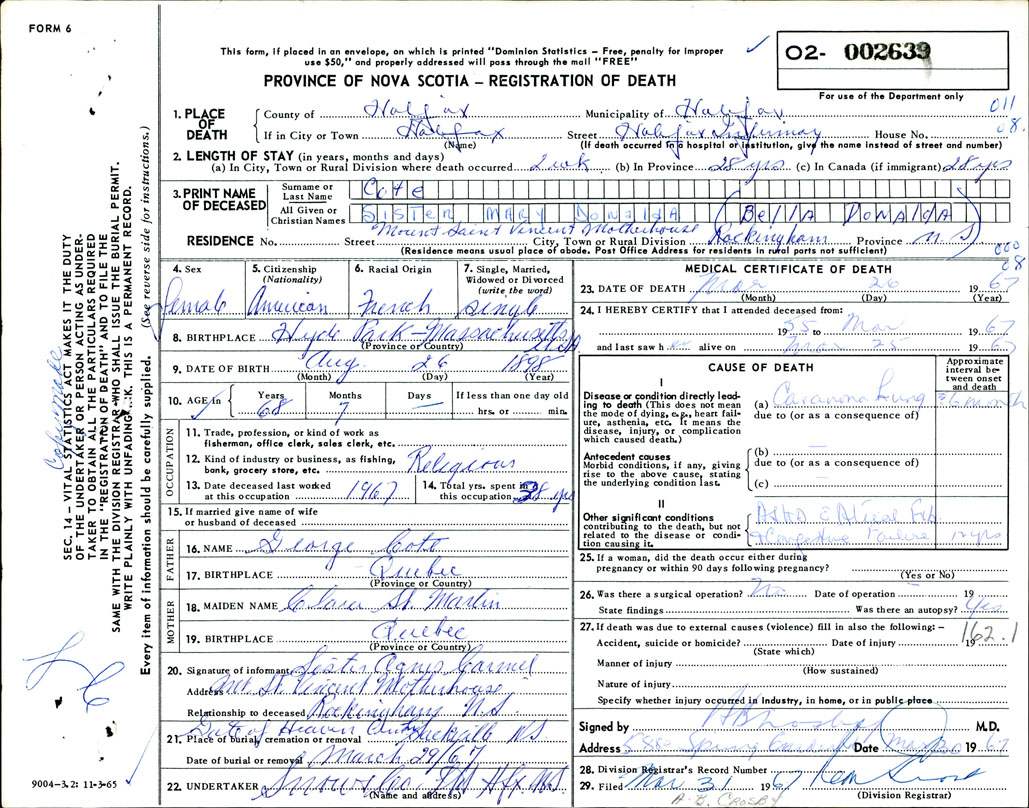 FORM 6
This form, if placed in an envelope, on which is printed "Dominion Statistics – Free, penalty for improper
use $50," and properly addressed will pass through the mail "FREE"
PROVINCE OF NOVA SCOTIA – REGISTRATION OF DEATH
02- 002639
For use of the Department only
011
08.
1. PLACE OF DEATH
County of Halifax Municipality of Halifax
If in City or Town Halifax Street Halifax Infirmary House No.
(Name) (If death occurred in a hospital or institution, give the name instead of street and number)
2. LENGTH OF STAY (in years, months and days)
(a) In City, Town or Rural Division where death occurred 2 wk (b) In Province 28 yrs (c) In Canada (if immigrant) 28 yrs
3. PRINT NAME OF DECEASED
Surname or Last Name Cote
All Given or Christian Names SISTER MARY DONALDA (BELLA DONALDA)
Mount Saint Vincent Motherhouse
RESIDENCE No. Street City, Town or Rural Division Rockingham Province N.S
(Residence means usual place of abode. Post Office Address for residents in rural parts not sufficient)
000
08
4. Sex
female
5. Citizenship (Nationality)
American
6. Racial Origin
French
7. Single, Married, Widowed or Divorced (write the word)
single
8. BIRTHPLACE Hyde Park – Massachusetts
(Province or Country)
9. DATE OF BIRTH Aug. 26 1898
(Month) (Day) (Year)
10. AGE in Years 68 Months 7 Days —
If less than one day old
hrs. or min.
OCCUPATION
11. Trade, profession, or kind of work as
fisherman, office clerk, sales clerk, etc.
12. Kind of industry or business, as fishing,
bank, grocery store, etc. Religious
13. Date deceased last worked
at this occupation 1967
14. Total yrs. spent in
this occupation 38 yrs
15. If married give name of wife
or husband of deceased
FATHER
16. NAME George Cote
17. BIRTHPLACE Quebec
(Province or Country)
MOTHER
18. MAIDEN NAME Clara St. Martin
19. BIRTHPLACE Quebec
(Province or Country)
20. Signature of informant Sister Agnes Carmel
Address Mt. St. Vincent Motherhouse
Relationship to deceased Rockingham N.S.
Gate of Heaven
21. Place of burial, cremation or removal Sackville NS
Date of burial or removal March 29/67
22. UNDERTAKER Snow & Co. Ltd Hfx N.S.
(Name and address)
MEDICAL CERTIFICATE OF DEATH
23. DATE OF DEATH Mar 26 1967
(Month) (Day) (Year)
24. I HEREBY CERTIFY that I attended deceased from:
1955 to Mar 1967
and last saw her alive on Mar 25 1967
CAUSE OF DEATH
Approximate interval between onset and death
I
Disease or condition directly leading to death (This does not mean the mode of dying, e.g., heart failure, asthenia, etc. It means the disease, injury, or complication which caused death.)
(a) Lung month
due to (or as a consequence of)
Antecedent causes
Morbid conditions, if any, giving rise to the above cause, stating the underlying condition last.
(b) —
due to (or as a consequence of)
(c) —
II
Other significant conditions contributing to the death, but not related to the disease or condition causing it.
ASHD Atrial Fib.
& Congestive Failure yrs
25. If a woman, did the death occur either during
pregnancy or within 90 days following pregnancy?
(Yes or No)
26. Was there a surgical operation? No Date of operation 19
State findings Was there an autopsy? Yes
27. If death was due to external causes (violence) fill in also the following: –
162.1
Accident, suicide or homicide? Date of injury 19
(State which)
Manner of injury
(How sustained)
Nature of injury
Specify whether injury occurred in industry, in home, or in public place
Signed by M.D.
Address Spring Garden Date 1967
28. Division Registrar's Record Number
29. Filed Mar 31 1967
(Division Registrar)
A. B. CROSBY
SEC. 14 – VITAL STATISTICS ACT MAKES IT THE DUTY
OF THE UNDERTAKER OR PERSON ACTING AS UNDER-
TAKER TO OBTAIN ALL THE PARTICULARS REQUIRED
IN THE "REGISTRATION OF DEATH" AND TO FILE THE
SAME WITH THE DIVISION REGISTRAR WHO SHALL ISSUE THE BURIAL PERMIT.
WRITE PLAINLY WITH UNFADING INK. THIS IS A PERMANENT RECORD.
Every item of information should be carefully supplied. (See reverse side for instructions.)
9004–3.2: 11-3-65